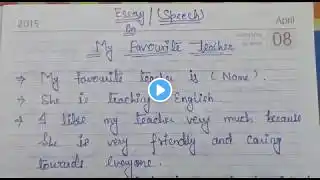 Essay / (Speech)
on
2015
April
08
My Favourite teacher
→ My Favourite teacher is (Name).
→ She is teaching English
→ I like my teacher very much because
She is very friendly and caring
towards everyone.